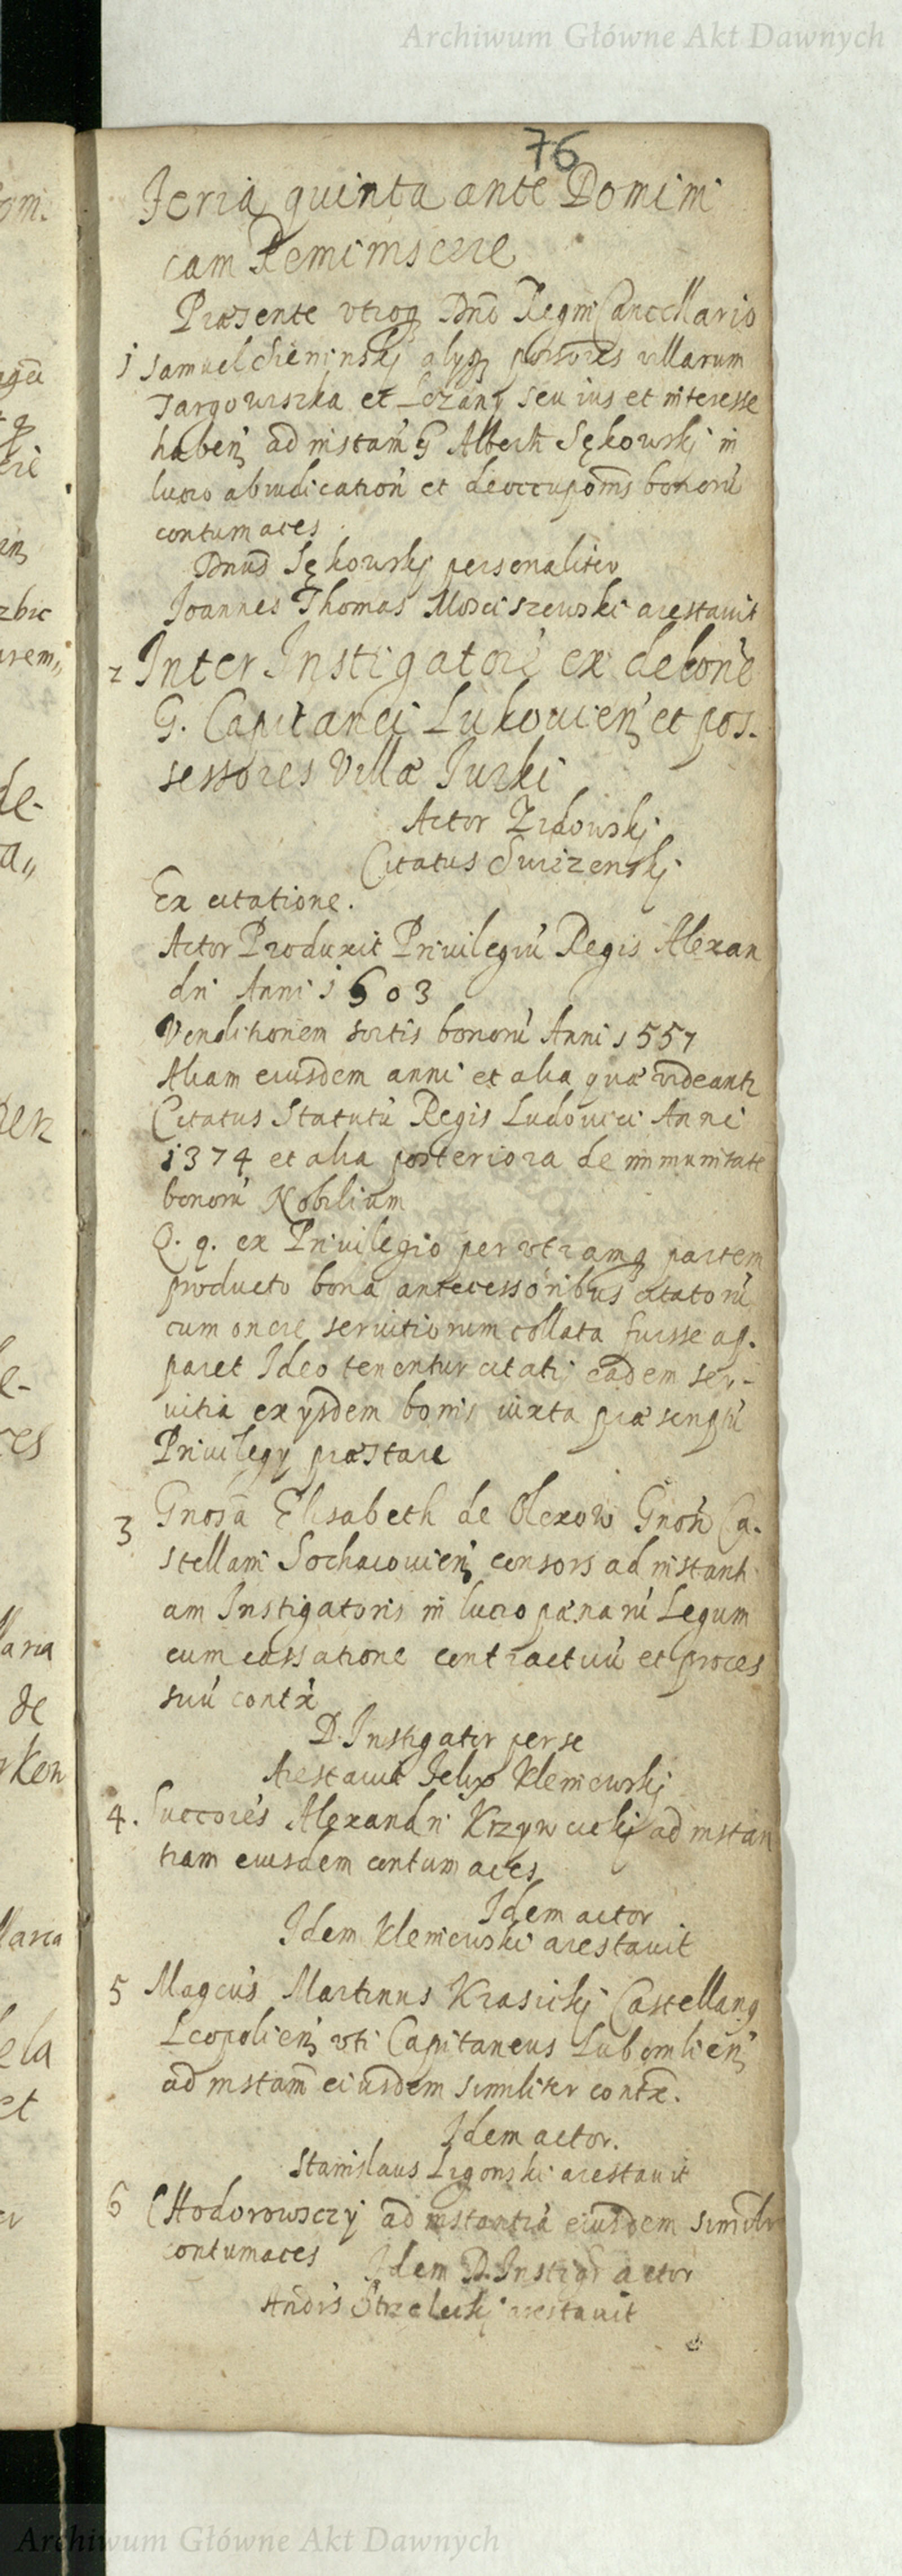 Archiwum Główne Akt Dawnych
76
Feria quinta ante Domini
cam Reminiscere
Præsente vtroq Dno Regni Cancellario
1 Samuel Cieninskj alyq possores villarum
Targowiszka et Lezany seu ius et interesse
haben ad instam G Alberti Sękowskj in
lucro abiudication et deoccupoms bonorū
contumaces
Dnus Sękowskj personaliter
Joannes Thomas Mosciszewski arestauit
2 Inter Instigatore ex delone
G. Capitanei Lukouien et pos-
sessores Villæ Jurki
Actor Zidowskj
Citatus Swizenskj
Ex citatione.
Actor Produxit Priuilegiū Regis Alexan
dri Anni 1603
Venditionem sortis bonorū Anni 1557
Aliam eiusdem anni et alia quæ videantr
Citatus Statutū Regis Ludouici Anni
1374 et alia posteriora de immunitate
bonorū Nobilium
Q. q. ex Priuilegio per vtramq partem
producto bona antecessoribus citatorū
cum onere seruitiorum collata fuisse ap-
paret Ideo tenentur citati eadem ser-
uitia ex ysdem bonis iuxta præscriptū
Priuilegy præstare
3 Gnosa Elisabeth de Olexow Gnosi Ca-
stellani Sochacouien consors ad instanti
am Instigatoris in lucro pænarū Legum
cum cassatione contractuū et proces
suū contx
D. Instigator per se
Arestauit Felix Kleniewskj
4. Succores Alexandri Krzywieckj ad instan
tiam eiusdem contumaces
Idem actor
Idem Kleniewski arestauit
5 Magcus Martinus Krasickj Castellanq
Leopolien vti Capitaneus Lubomlien
ad instam eiusdem similiter contx.
Idem actor.
Stanislaus Ligonski arestauit
6 Chodorowsczy ad instantiā eiusdem similr
contumaces
Idem D. Instigr actor
Andrs Strzeleckj arestauit
Archiwum Główne Akt Dawnych